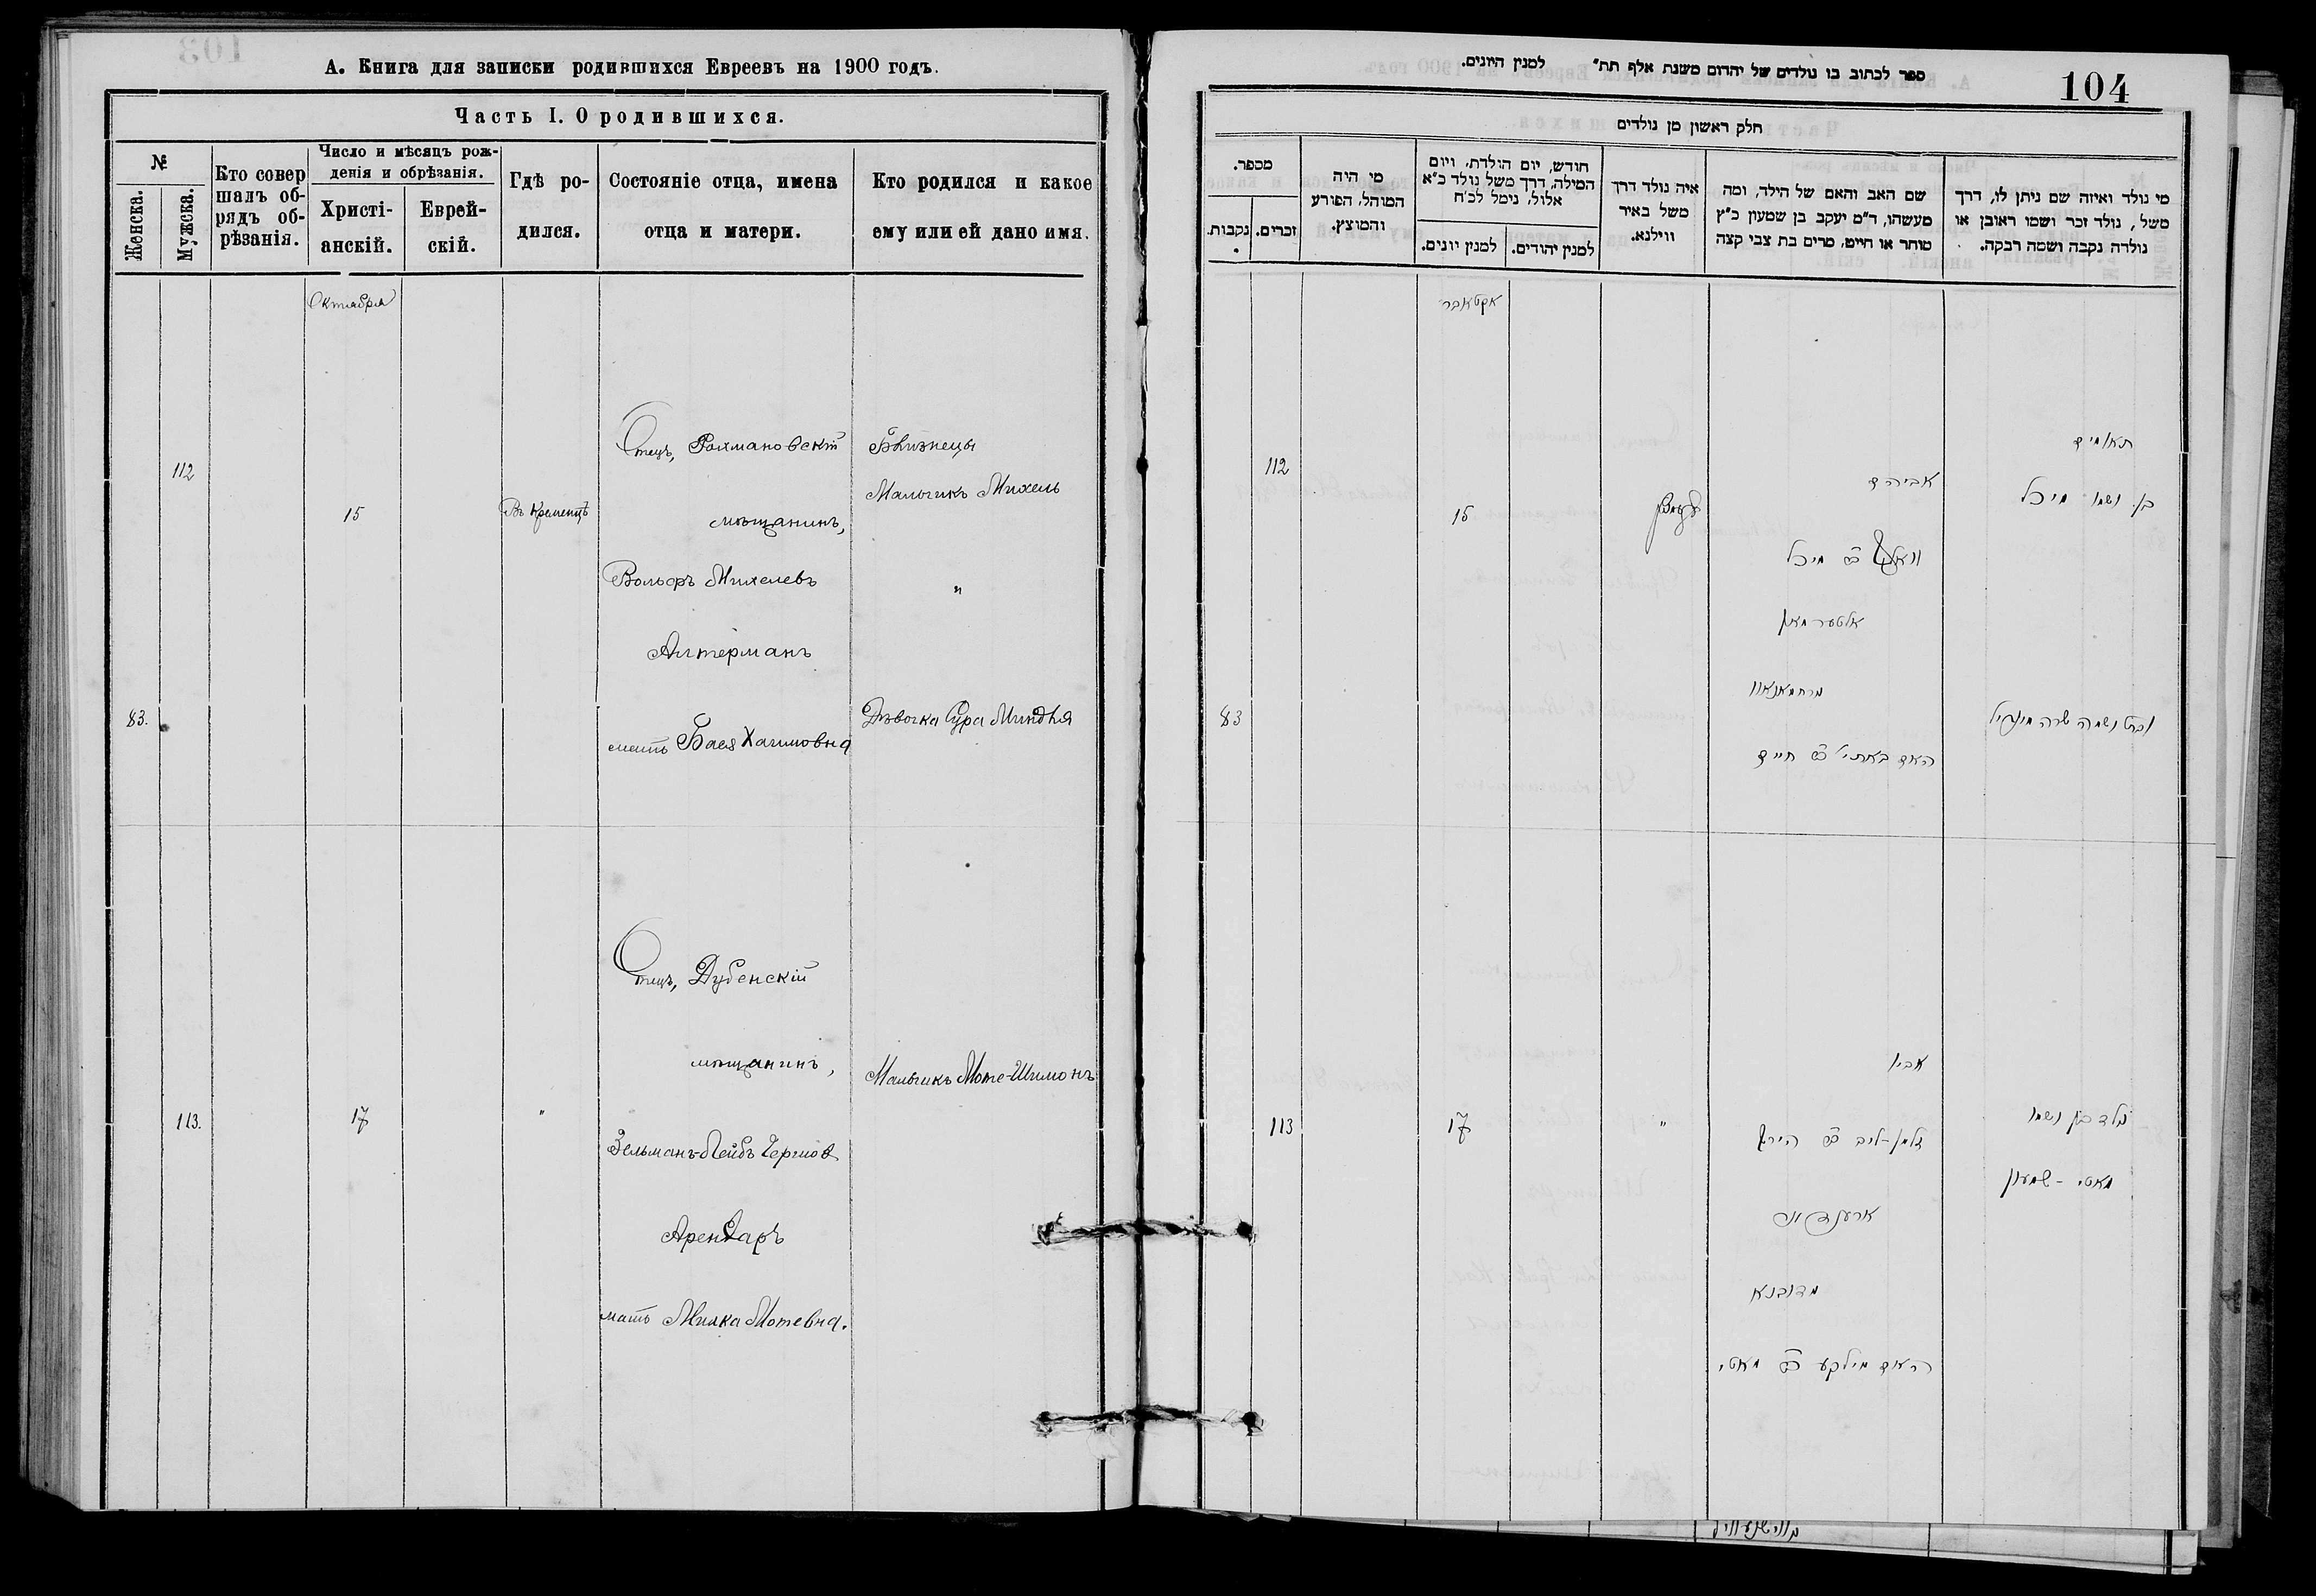 А. Книга для записки родившихся Евреевъ на 1900 годъ.
Часть I. О родившихся.
№
Женска.
Мужска.
Кто совер
шалъ об-
рядъ об-
рѣзанія.
Число и мѣсяцъ рож-
денія и обрѣзанія.
Христі-
анскій.
Еврей-
скій.
Гдѣ ро-
дился.
Состояніе отца, имена
отца и матери.
Кто родился и какое
ему или ей дано имя.
Октября
112
15
Въ Кременцѣ
Отецъ, Рахмановскій
мѣщанинъ,
Вольфъ Михелевъ
Альтерманъ
мать Бася Хаимовна
Близнецы
Мальчикъ Михель
"
83.
Дѣвочка Сура Миндля
113.
17
"
Отецъ, Дубенскій
мѣщанинъ,
Зельманъ-Лейбъ
Арендаръ
мать Милка Мотевна.
Мальчикъ Моте-Шимонъ
104
ספר לכתוב בו נולדים של יהדום משנת אלף תת״ למנין היונים.
חלק ראשון מן נולדים
מי נולד ואיזה שם ניתן לו, דרך
משל, נולד זכר ושמו ראובן או
נולדה נקבה ושמה רבקה.
שם האב והאם של הילד, ומה
מעשהו, ד״מ יעקב בן שמעון כ״ץ
סוחר או חייט, מרים בת צבי קצה
איה נולד דרך
משל באיר
ווילנא.
חודש, יום הולדת, ויום
המילה, דרך משל נולד כ״א
אלול, נימל לכ״ח
למנין יהודים.
למנין יונים.
מי היה
המוהל, הפורע
והמוצץ.
מספר.
זכרים.
נקבות.
אקטאבר
112
15
תאומים
בן ושמו מיכל
אביהם
וואלף ב״ר מיכל
אלטערמאן
מרחמאנאוו
האם באסי׳ ב״ר חיים
83
ובת ושמה שרה מינדיל
113
17
"
אביו
זלמן-ליב ב״ר הירש
מדובנא
האם מילקע ב״ר מאטי
נולד בן ושמו
מאטי-שמעון